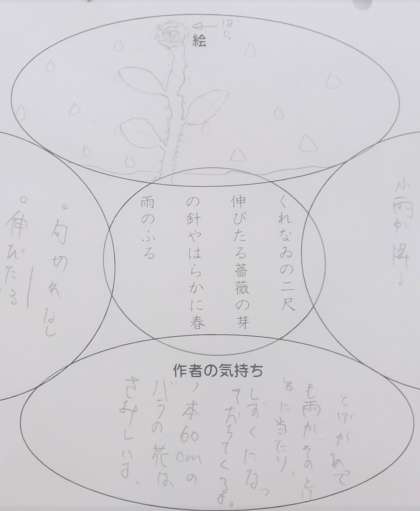 絵
ばら
くれなゐの二尺
伸びたる薔薇の芽
の針やはらかに春
雨のふる
小雨が降る
。句切れなし
。伸びたる
作者の気持ち
とげがあって
も雨がそのとげ
に当たり、
しずくになっ
ておちてくる。
1本60cmの
バラの花は
さみしいな、